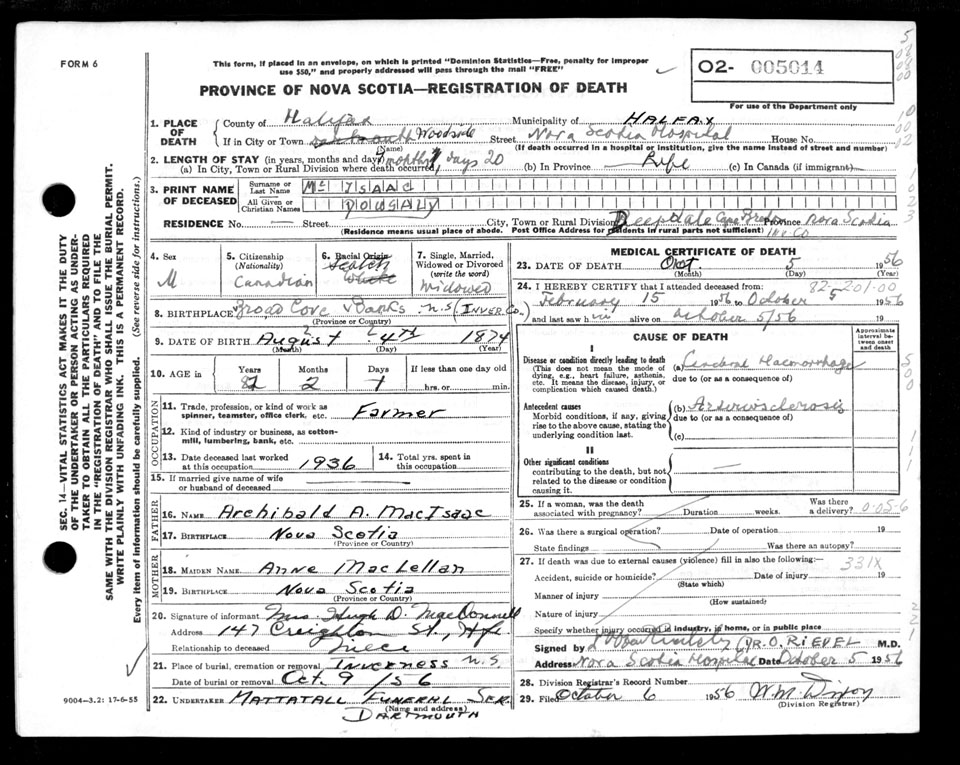 FORM 6
This form, if placed in an envelope, on which is printed "Dominion Statistics—Free, penalty for improper
use $50," and properly addressed will pass through the mail "FREE"
PROVINCE OF NOVA SCOTIA—REGISTRATION OF DEATH
O2- 005014
For use of the Department only
1. PLACE OF DEATH
County of Halifax Municipality of HALFAX
If in City or Town Woodside Street Nova Scotia Hospital House No.
(Name) (If death occurred in a hospital or institution, give the name instead of street and number)
2. LENGTH OF STAY (in years, months and days)
(a) In City, Town or Rural Division where death occurred, 7 months days 20 (b) In Province Life (c) In Canada (if immigrant)
3. PRINT NAME OF DECEASED
Surname or Last Name Mc ISAAC
All Given or Christian Names DOUGALD
RESIDENCE No. — Street City, Town or Rural Division Deepdale Cape Breton Province Nova Scotia
(Residence means usual place of abode. Post Office Address for residents in rural parts not sufficient) Inv Co
4. Sex
M
5. Citizenship
(Nationality)
Canadian
6. Racial Origin
Scotch
White
7. Single, Married,
Widowed or Divorced
(write the word)
Widowed
8. BIRTHPLACE Broad Cove Banks N.S (INVER. Co.)
(Province or Country)
9. DATE OF BIRTH August 4TH 1874
(Month) (Day) (Year)
10. AGE in
Years Months Days If less than one day old
82 2 1 hrs. or min.
OCCUPATION
11. Trade, profession, or kind of work as
spinner, teamster, office clerk, etc. Farmer
12. Kind of industry or business, as cotton-
mill, lumbering, bank, etc.
13. Date deceased last worked
at this occupation 1936
14. Total yrs. spent in
this occupation
15. If married give name of wife
or husband of deceased
FATHER
16. NAME Archibald A. MacIsaac
17. BIRTHPLACE Nova Scotia
(Province or Country)
MOTHER
18. MAIDEN NAME Anne MacLellan
19. BIRTHPLACE Nova Scotia
(Province or Country)
20. Signature of informant Mrs. Hugh D. MacDonnell
Address 147 Creighton St., Hfx
Relationship to deceased Niece
21. Place of burial, cremation or removal INVERNESS N.S
Date of burial or removal Oct. 9 /56
22. UNDERTAKER MATTATALL FUNERAL SER.
(Name and address)
DARTMOUTH
MEDICAL CERTIFICATE OF DEATH
23. DATE OF DEATH Oct 5 1956
(Month) (Day) (Year)
24. I HEREBY CERTIFY that I attended deceased from: 82-201-00
February 15 1956 to October 5 1956
and last saw him alive on October 5/56 19
CAUSE OF DEATH
Approximate interval between onset and death
I
Disease or condition directly leading to death
(This does not mean the mode of
dying, e.g., heart failure, asthenia,
etc. It means the disease, injury, or
complication which caused death.)
(a) Cerebral Haemorrhage
due to (or as a consequence of)
Antecedent causes
Morbid conditions, if any, giving
rise to the above cause, stating the
underlying condition last.
(b) Arteriosclerosis
due to (or as a consequence of)
(c)
II
Other significant conditions
contributing to the death, but not
related to the disease or condition
causing it.
25. If a woman, was the death
associated with pregnancy? Duration weeks. Was there a delivery? 0-05-6
26. Was there a surgical operation? Date of operation 19
State findings Was there an autopsy?
27. If death was due to external causes (violence) fill in also the following: 331X
Accident, suicide or homicide? Date of injury 19
(State which)
Manner of injury
(How sustained)
Nature of injury
Specify whether injury occurred in industry, in home, or in public place
Signed by (DR. O. RIEDEL M.D.
Address Nova Scotia Hospital Date October 5 1956
28. Division Registrar's Record Number
29. Filed October 6 1956 W.M. Dixon
(Division Registrar)
9004—3.2: 17-6-55
SEC. 14—VITAL STATISTICS ACT MAKES IT THE DUTY
OF THE UNDERTAKER OR PERSON ACTING AS UNDER-
TAKER TO OBTAIN ALL THE PARTICULARS REQUIRED
IN THE "REGISTRATION OF DEATH" AND TO FILE THE
SAME WITH THE DIVISION REGISTRAR WHO SHALL ISSUE THE BURIAL PERMIT.
WRITE PLAINLY WITH UNFADING INK. THIS IS A PERMANENT RECORD.
Every item of information should be carefully supplied. (See reverse side for instructions.)